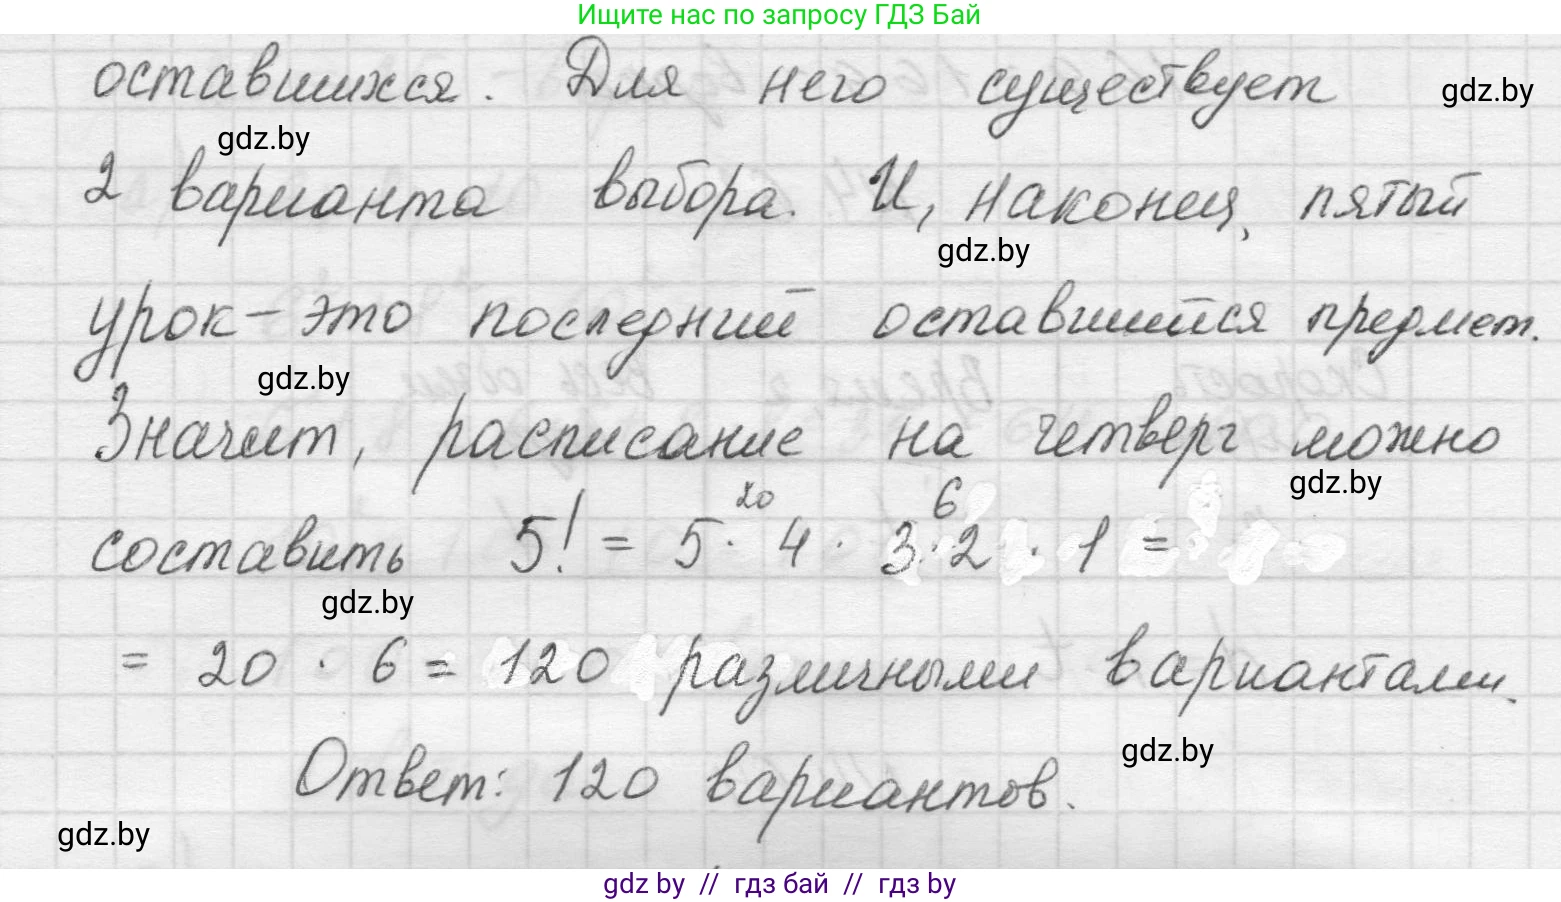 Ищите нас по запросу ГДЗ Бай
оставшихся. Для него существует
gdz.by
gdz.by
2 варианта выбора. И, наконец, пятый
gdz.by
урок - это последний оставшийся предмет.
gdz.by
Значит, расписание на четверг можно
gdz.by
20 6
составить 5! = 5 · 4 · 3 · 2 · 1 =
gdz.by
= 20 · 6 = 120 различными вариантами.
gdz.by
Ответ: 120 вариантов.
gdz.by
gdz by // гдз бай // гдз by